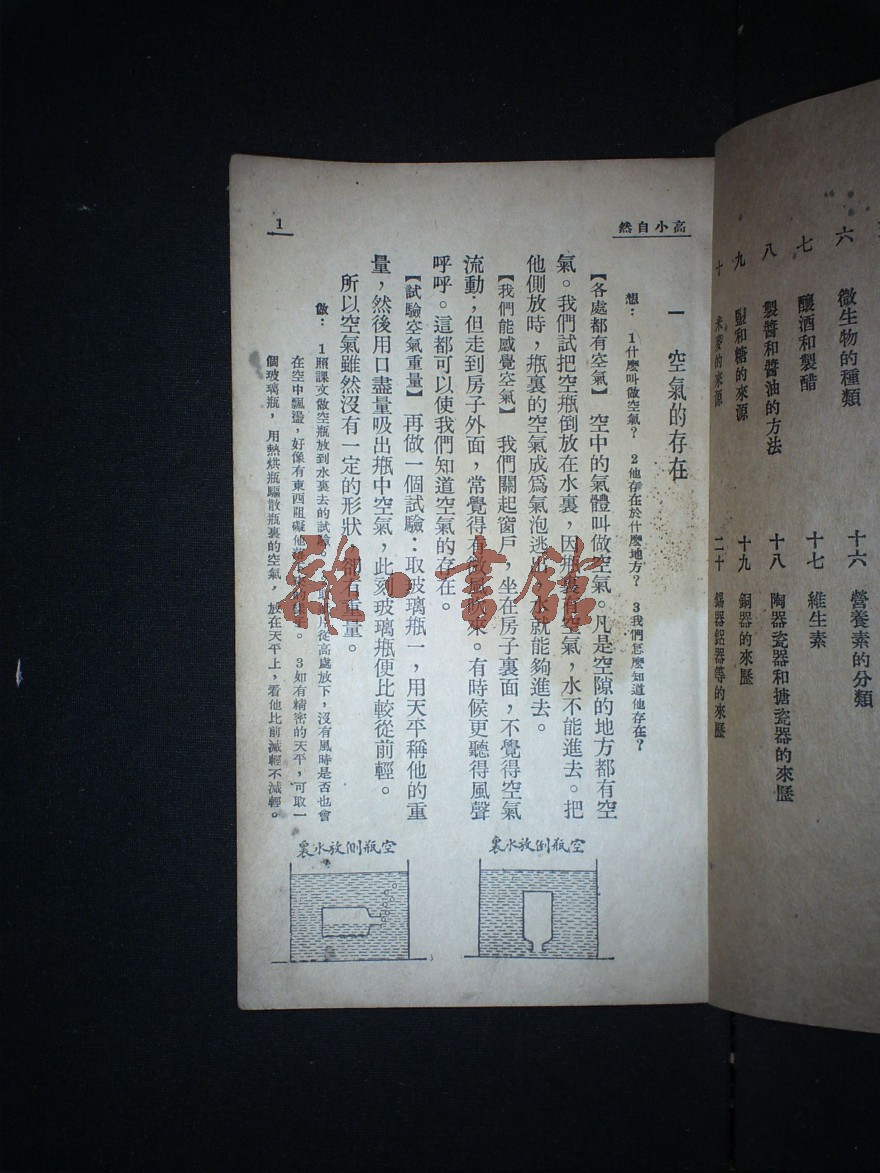 六　微生物的種類
七　釀酒和製醋
八　製醬和醬油的方法
九　鹽和糖的來源
十　米麥的來源
十六　營養素的分類
十七　維生素
十八　陶器瓷器和搪瓷器的來歷
十九　銅器的來歷
二十　錫器鋁器等的來歷
高小自然
一　空氣的存在
想：　1什麼叫做空氣？　2他存在於什麼地方？　3我們怎麼知道他存在？
【各處都有空氣】　空中的氣體叫做空氣。凡是空隙的地方都有空
氣。我們試把空瓶倒放在水裏，因瓶裏有空氣，水不能進去。把
他側放時，瓶裏的空氣成爲氣泡逃出，水就能夠進去。
【我們能感覺空氣】　我們關起窗戶，坐在房子裏面，不覺得空氣
流動；但走到房子外面，常覺得有微風吹來。有時候更聽得風聲
呼呼。這都可以使我們知道空氣的存在。
【試驗空氣重量】　再做一個試驗：取玻璃瓶一，用天平稱他的重
量，然後用口盡量吸出瓶中空氣，此刻玻璃瓶便比較從前輕。
所以空氣雖然沒有一定的形狀，卻有重量。
做：　1照課文做空瓶放到水裏去的試驗。　片從高處放下，沒有風時是否也會
在空中飄盪，好像有東西阻礙他　的樣子。　3如有精密的天平，可取一
個玻璃瓶，用熱烘瓶驅散瓶裏的空氣，放在天平上，看他比前減輕不減輕。
空瓶倒放水裏
空瓶側放水裏
1
雜·書館